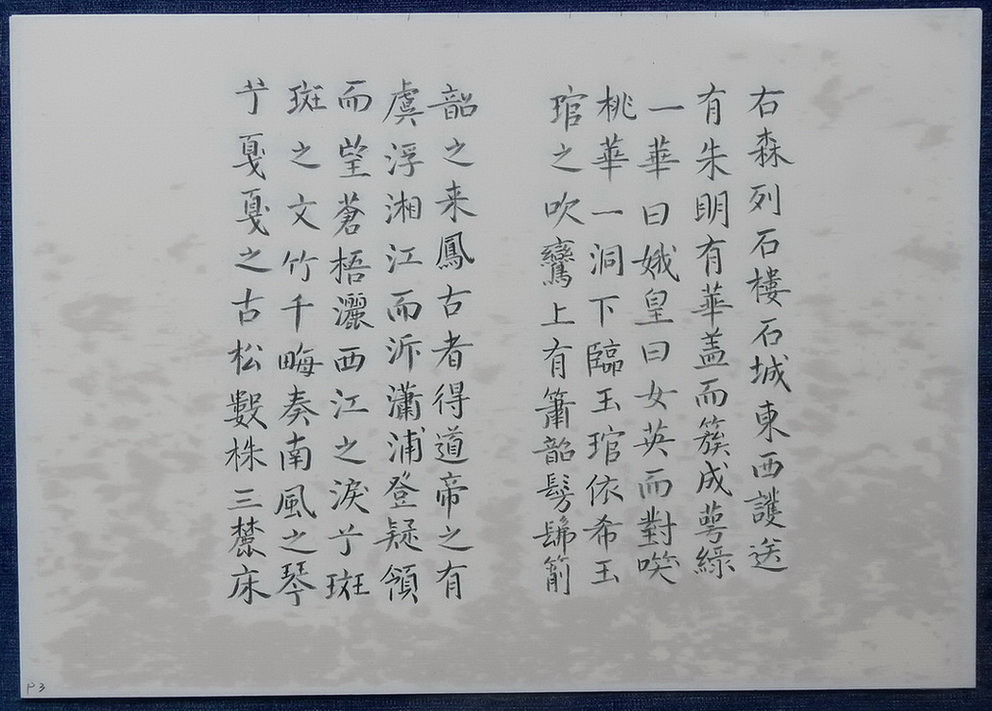 右森列石樓石城東西護送
有朱明有華盖而簇成萼綠
一華曰娥皇曰女英而對唉
桃華一洞下臨玉琯依希玉
琯之吹鸞上有簫韶髣髴箾
韶之来鳳古者得道帝之有
虞浮湘江而泝瀟浦登疑領
而望蒼梧灑西江之淚亍斑
斑之文竹千畮奏南風之琴
亍戛戛之古松數株三麓床
P3